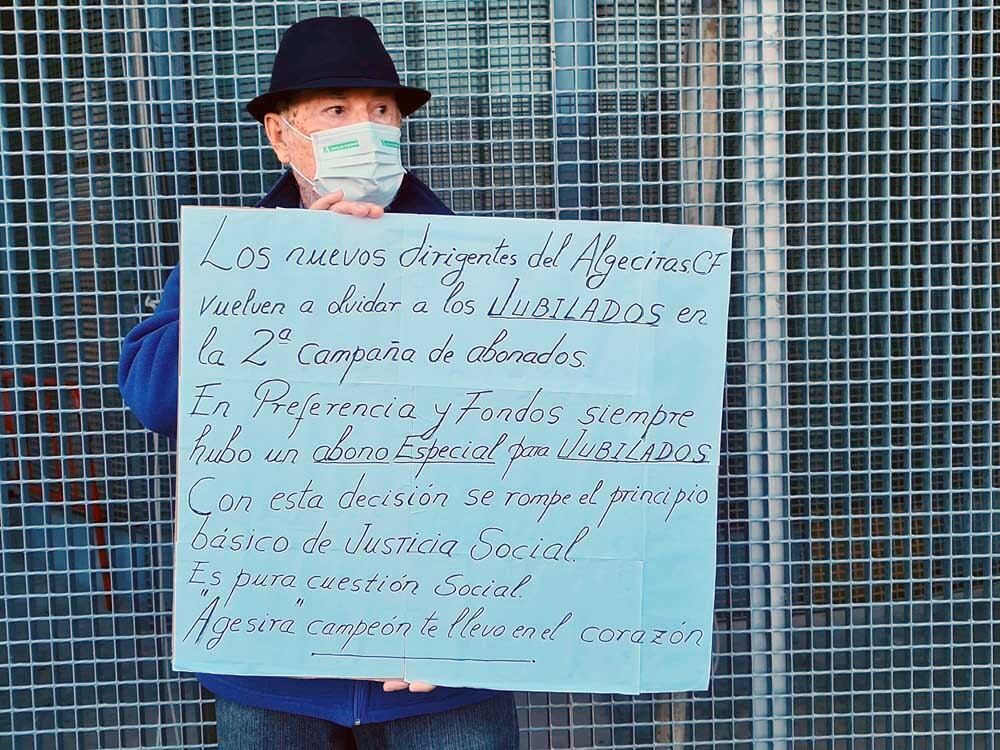 Los nuevos dirigentes del Algeciras.CF
vuelven a olvidar a los JUBILADOS en
la 2ª Campaña de abonados.
En Preferencia y Fondos siempre
hubo un abono Especial para JUBILADOS
Con esta decisión se rompe el principio
básico de Justicia Social.
Es pura cuestión Social.
"Agesira" campeón te llevo en el corazón